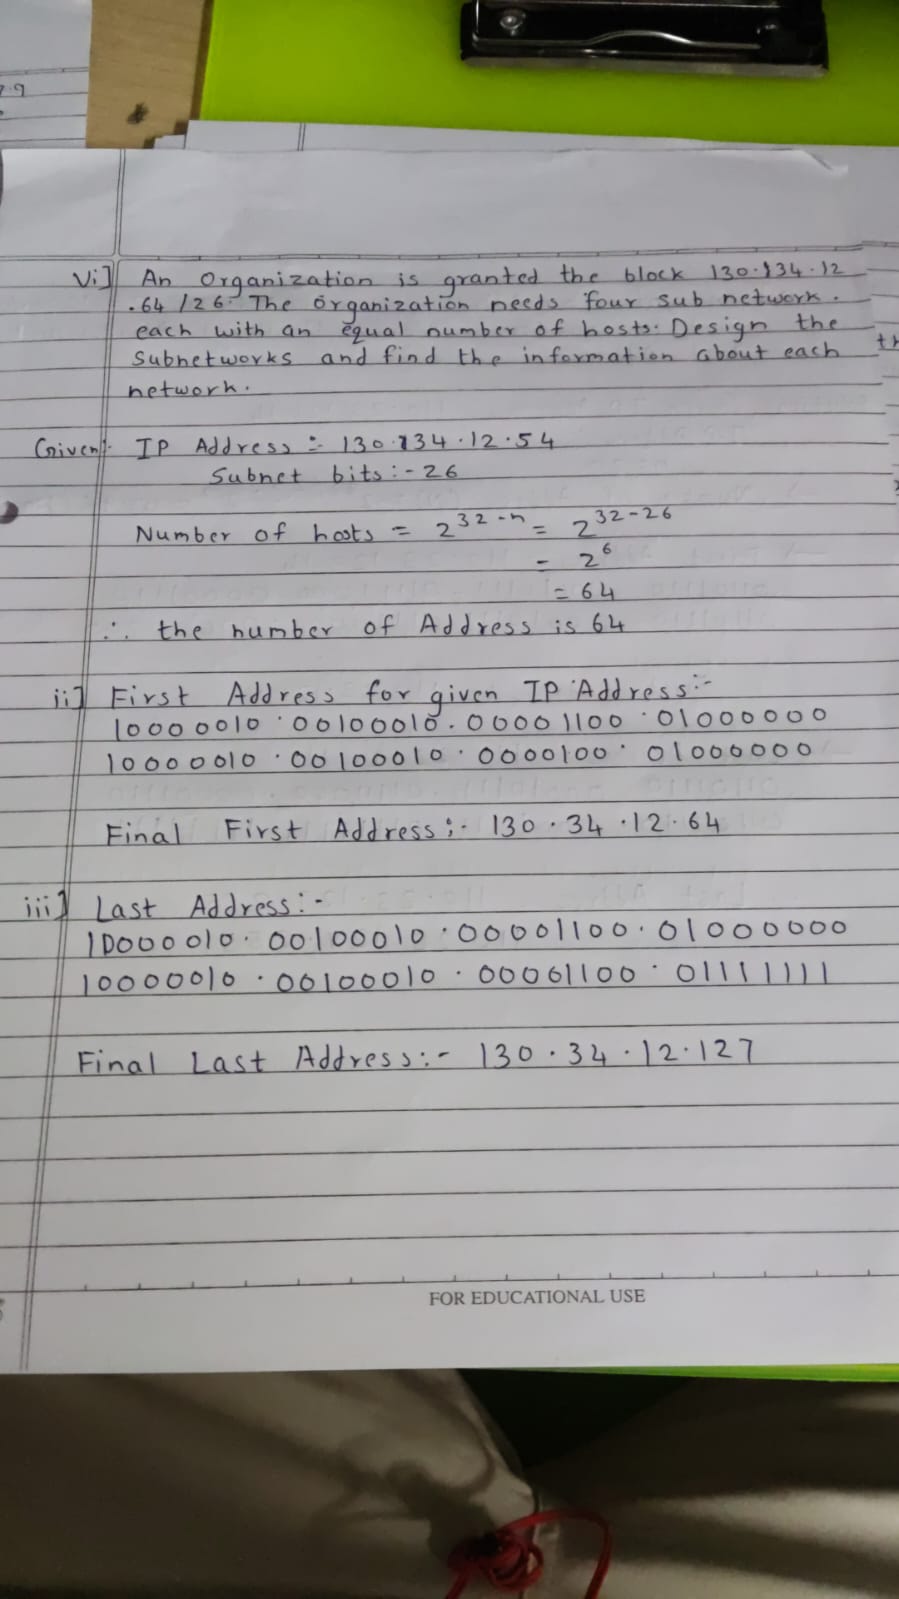 7.9
Vi] An Organization is granted the block 130.134.12
.64 /26. The organization needs four sub network.
each with an equal number of hosts. Design the
Subnetworks and find the information about each
network.
Given:- IP Address :- 130.134.12.54
Subnet bits :- 26
Number of hosts = 2^32-n = 2^32-26
= 2^6
= 64
∴ the number of Address is 64
ii] First Address for given IP Address:-
10000010.00100010.00001100.01000000
10000010.00100010.0000100.01000000
Final First Address :- 130.34.12.64
iii] Last Address :-
10000010.00100010.00001100.01000000
10000010.00100010.00001100.01111111
Final Last Address:- 130.34.12.127
FOR EDUCATIONAL USE